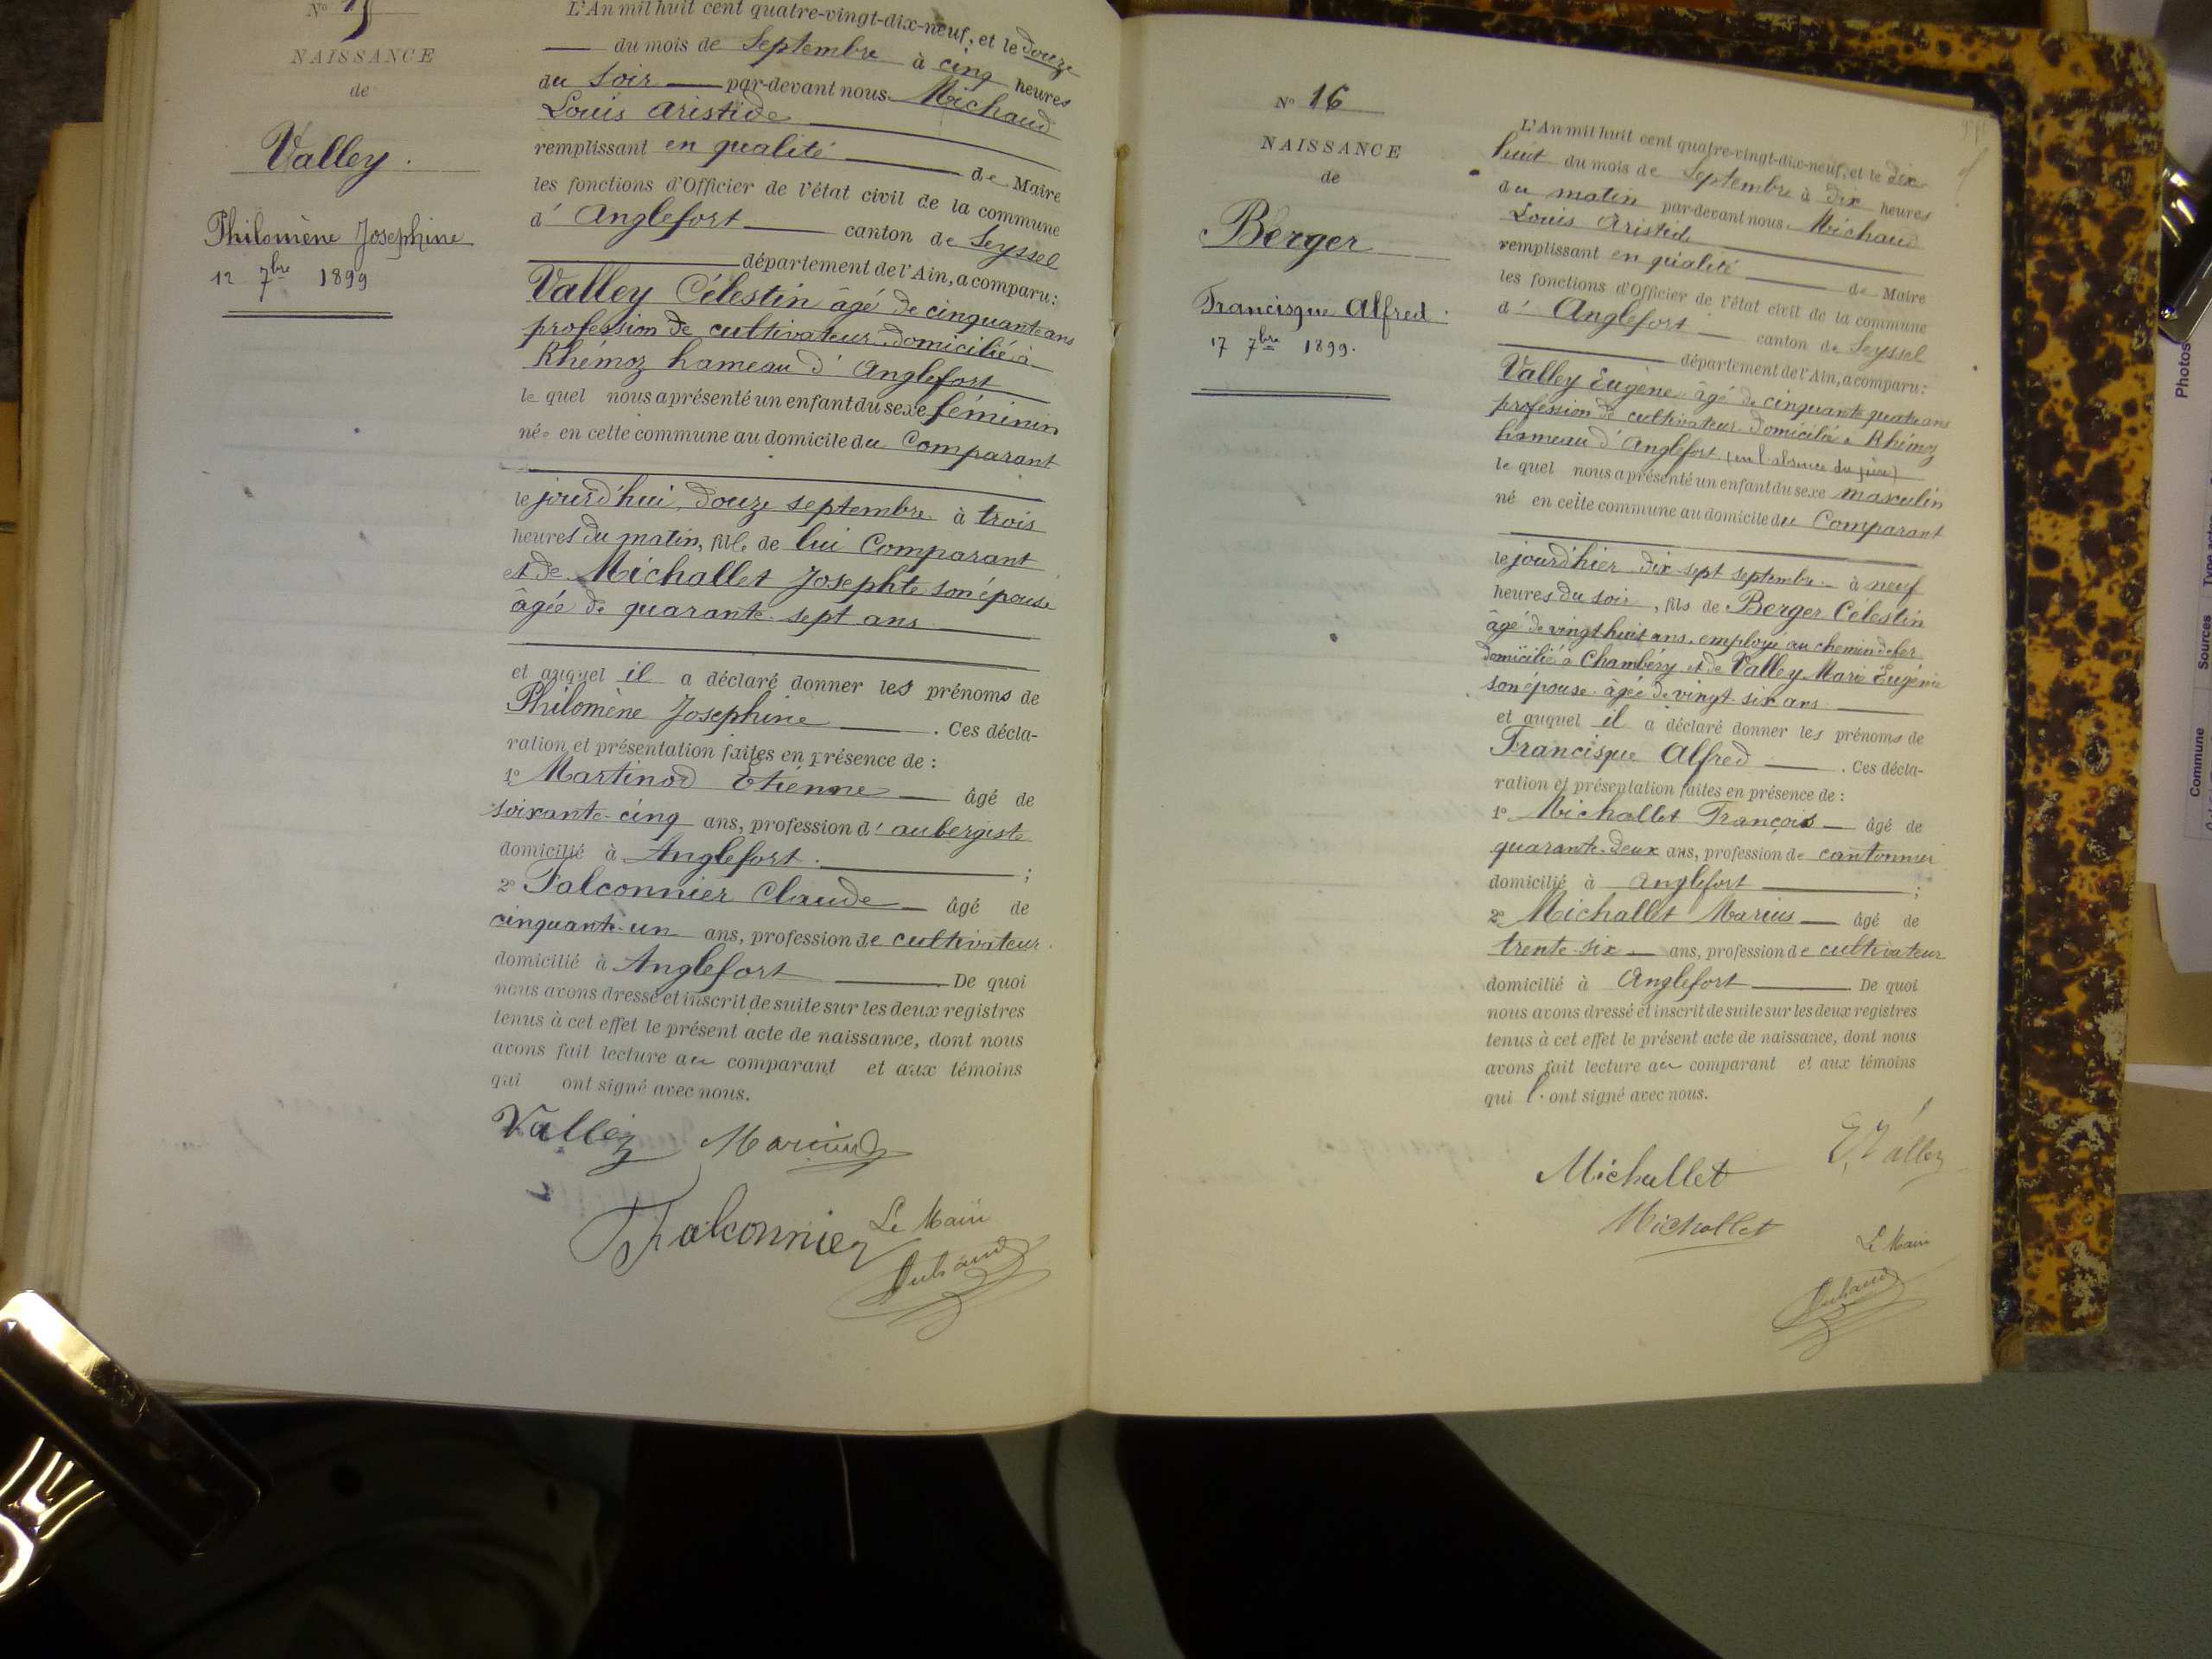 N° 15
NAISSANCE
de
Valley.
Philomène Josephine
12 7bre 1899
L'An mil huit cent quatre-vingt-dix-neuf, et le douze
du mois de Septembre à cinq heures
du Soir par-devant nous Michaud
Louis Aristide
remplissant en qualité de Maire
les fonctions d'Officier de l'état civil de la commune
d' Anglefort canton de Seyssel
département de l'Ain, a comparu:
Valley Célestin âgé de cinquante ans
profession de cultivateur domicilié à
Rhémoz hameau d' Anglefort
le quel nous a présenté un enfant du sexe féminin
née en cette commune au domicile du Comparant
le jourd'hui, douze septembre à trois
heures du matin, fille de lui Comparant
et de Michallet Josephte son épouse
âgée de quarante-sept ans
et auquel il a déclaré donner les prénoms de
Philomène Josephine. Ces décla-
ration et présentation faites en présence de :
1° Martinod Etienne âgé de
soixante-cinq ans, profession d' aubergiste
domicilié à Anglefort. ;
2° Falconnier Claude âgé de
cinquante-un ans, profession de cultivateur.
domicilié à Anglefort De quoi
nous avons dressé et inscrit de suite sur les deux registres
tenus à cet effet le présent acte de naissance, dont nous
avons fait lecture au comparant et aux témoins
qui ont signé avec nous.
Valley
Falconnier Le Maire
N° 16
NAISSANCE
de
Berger
Francisque Alfred.
17 7bre 1899.
L'An mil huit cent quatre-vingt-dix-neuf, et le dix-
huit du mois de Septembre à dix heures
du matin par-devant nous Michaud
Louis Aristide
remplissant en qualité de Maire
les fonctions d'Officier de l'état civil de la commune
d' Anglefort canton de Seyssel
département de l'Ain, a comparu:
Valley Eugène âgé de cinquante quatre ans
profession de cultivateur domicilié à Rhémoz
hameau d' Anglefort (en l'absence du père)
le quel nous a présenté un enfant du sexe masculin
né en cette commune au domicile du Comparant
le jourd'hier dix-sept septembre à neuf
heures du soir, fils de Berger Célestin
âgé de vingt huit ans, employé au chemin de fer
domicilié à Chambéry et de Valley Marie Eugénie
son épouse âgée de vingt-six ans
et auquel il a déclaré donner les prénoms de
Francisque Alfred. Ces décla-
ration et présentation faites en présence de :
1° Michallet François âgé de
quarante-deux ans, profession de cantonnier
domicilié à Anglefort ;
2° Michallet Marius âgé de
trente-six ans, profession de cultivateur
domicilié à Anglefort De quoi
nous avons dressé et inscrit de suite sur les deux registres
tenus à cet effet le présent acte de naissance, dont nous
avons fait lecture au comparant et aux témoins
qui l'ont signé avec nous.
E, Valley
Michallet
Michallet
Le Maire
Photos
Commune Sources Type actes